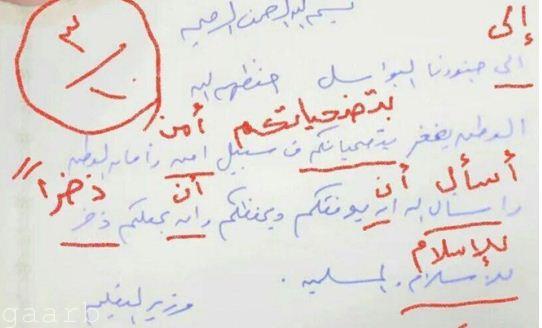 بسم الله الرحمن الرحيم
٣/١٠
إلى
الى جنودنا البواسل حفظهم الله
بتضحياتكم أمن
الوطن يفخر بتضحياتكم في سبيل امن وامان الوطن
أسأل أن أن ذخراً
واسال الله ان يوفقكم ويحفظكم وان يجعلكم ذخر
للإسلام
للاسلام والمسلمين.
وزير التعليم
gaarb